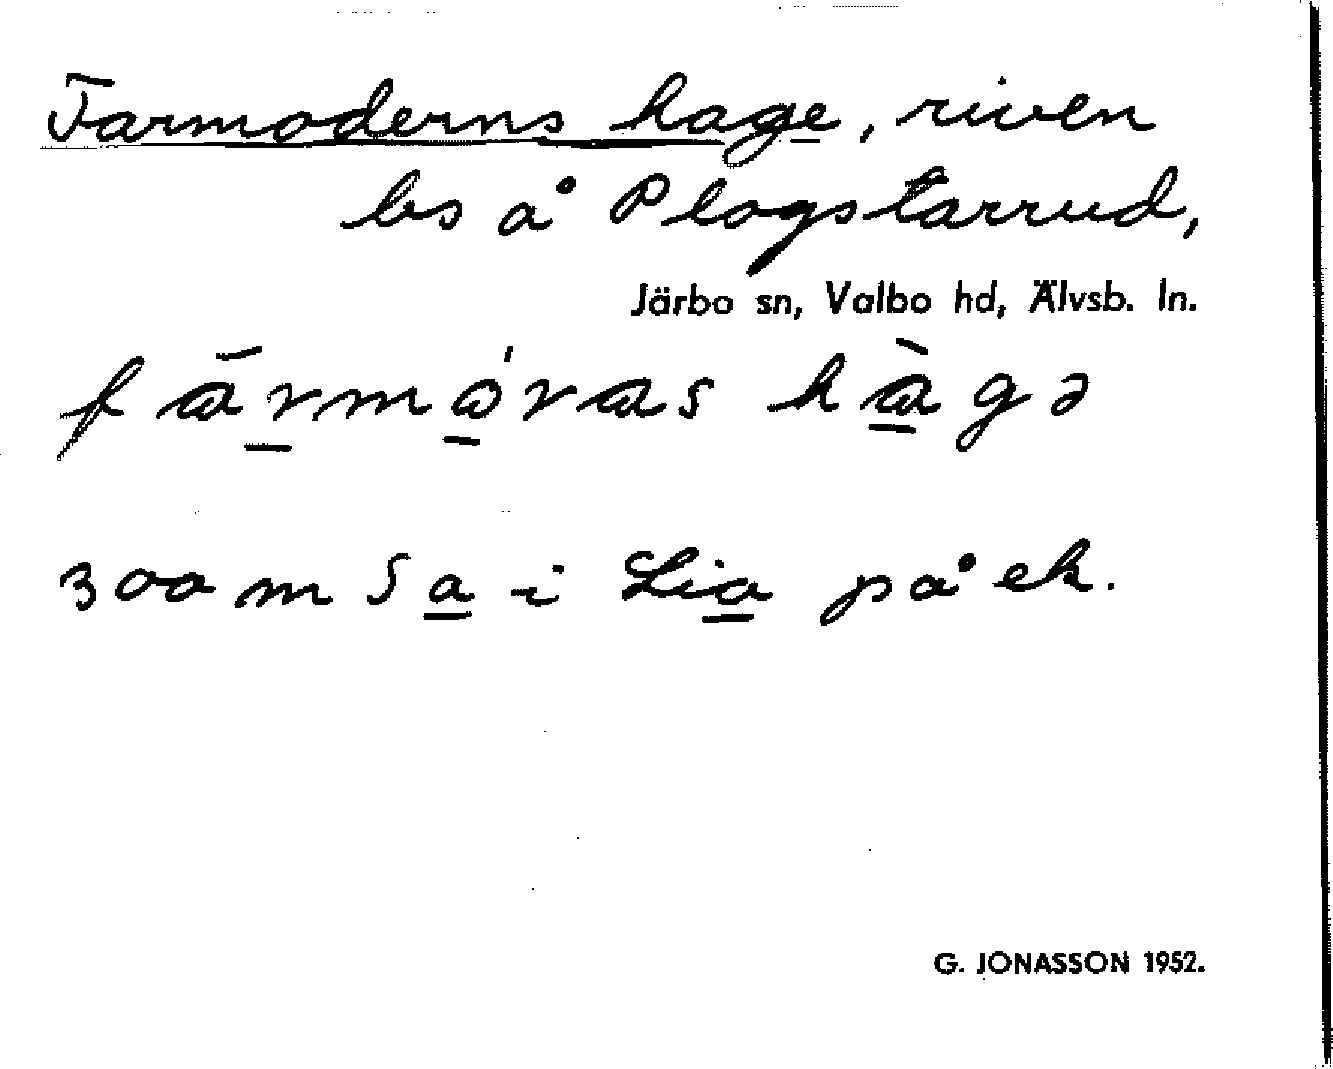 Farmoderns hage, riven
bs å Plogstarrud,
Järbo sn, Valbo hd, Älvsb. ln.
fàrmóras hàgə
300 m S a i Lia på ek.
G. JONASSON 1952.